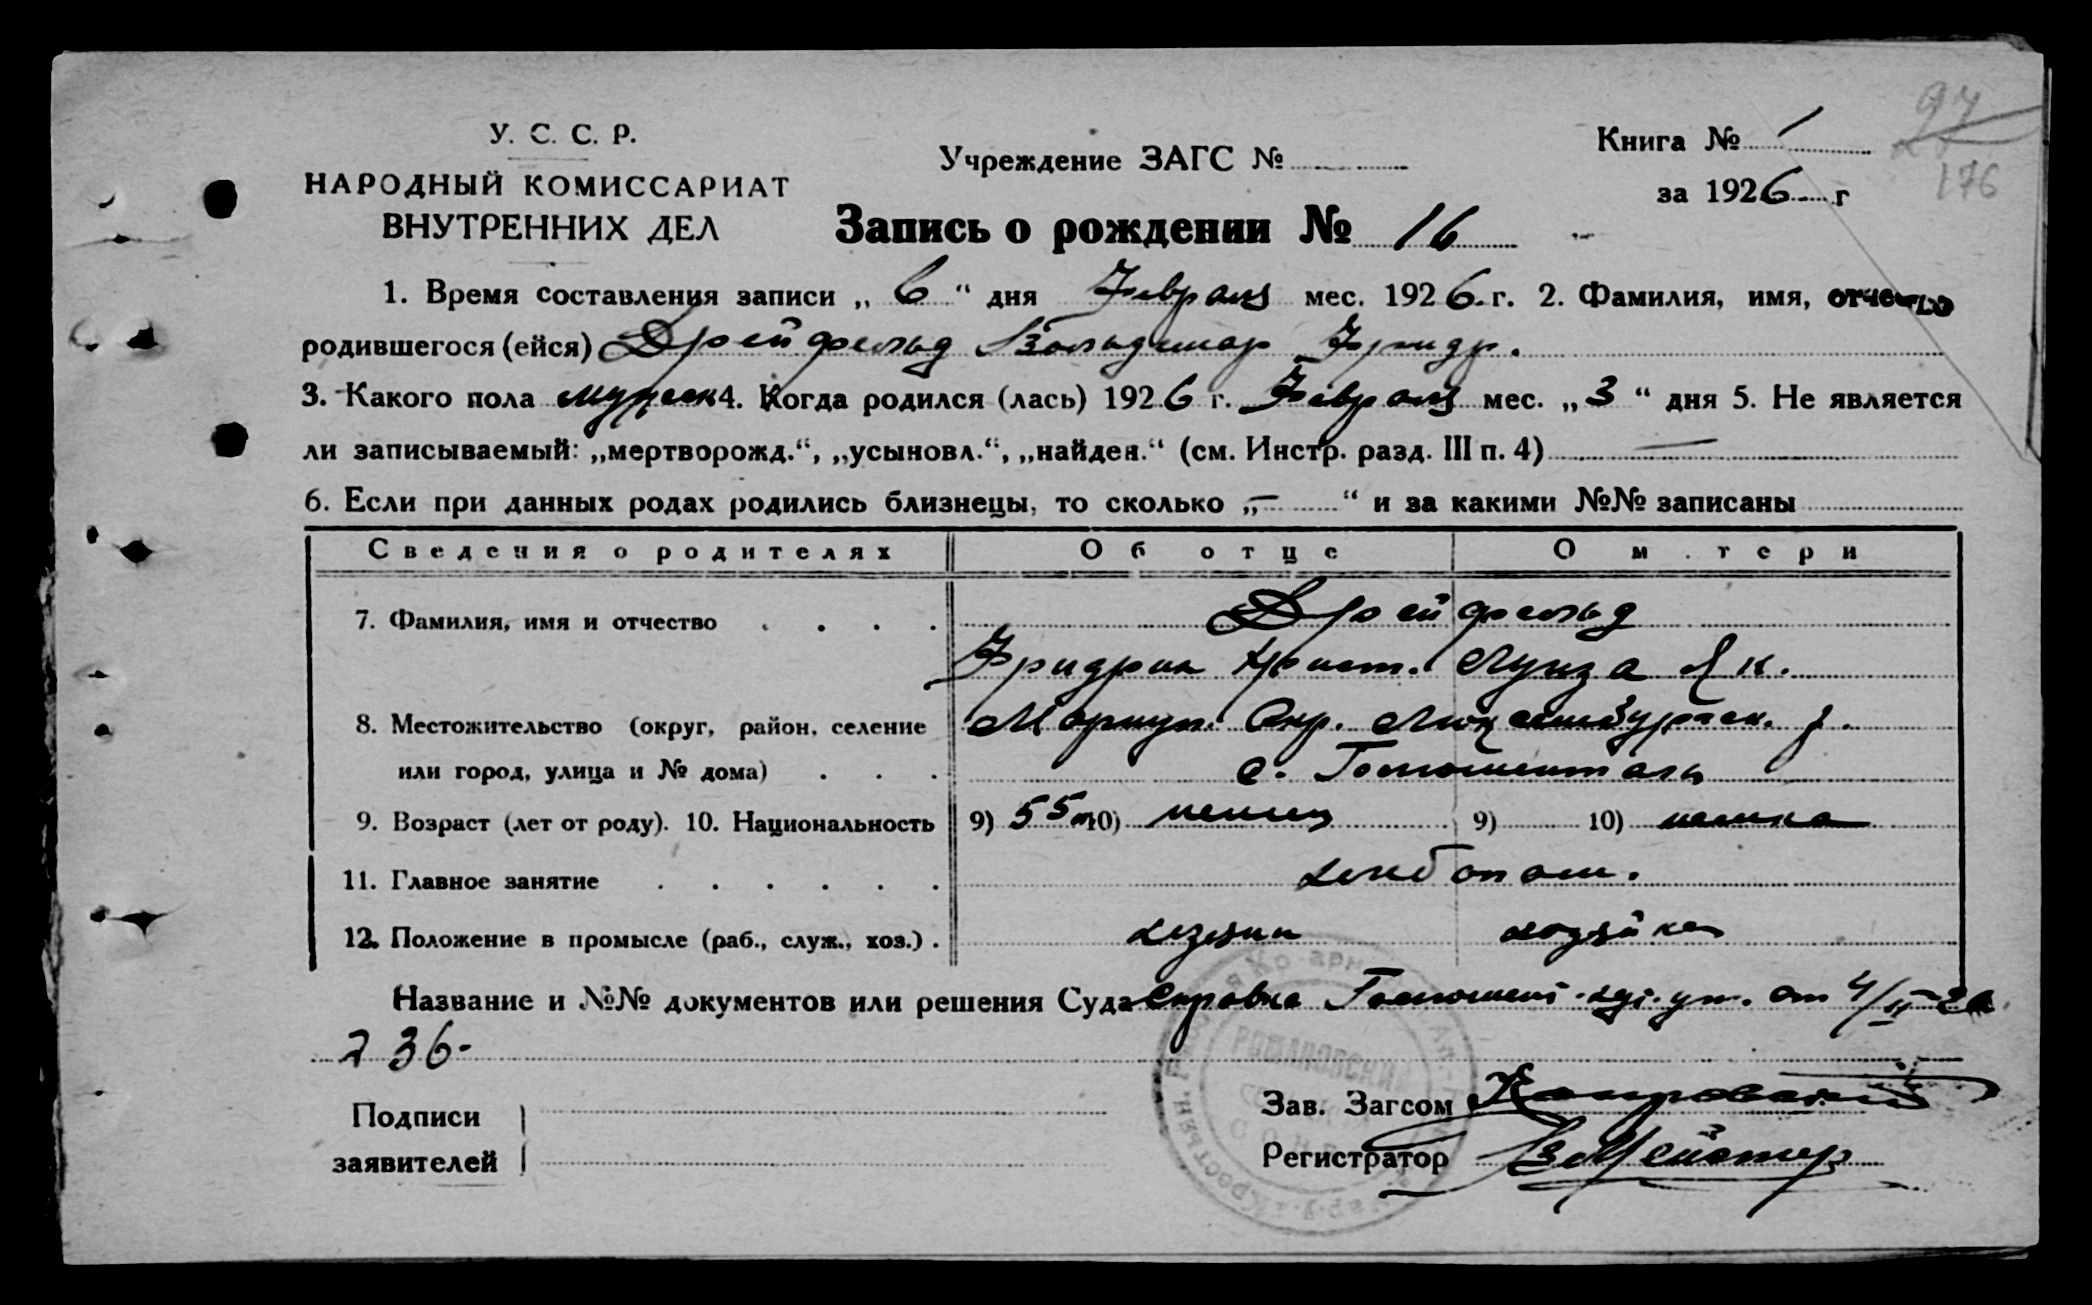 У. С. С. Р.
НАРОДНЫЙ КОМИССАРИАТ
ВНУТРЕННИХ ДЕЛ
Учреждение ЗАГС №
Книга № 1
за 1926 г
97
176
Запись о рождении № 16
1. Время составления записи „ 6 “ дня Февраля мес. 1926 г. 2. Фамилия, имя, отчество
родившегося (ейся) Дрейфельд Вольдемар Фридр.
3. Какого пола мужеск 4. Когда родился (лась) 1926 г. Февраля мес. „ 3 “ дня 5. Не является
ли записываемый: „мертворожд.“, „усыновл.“, „найден.“ (см. Инстр. разд. III п. 4) —
6. Если при данных родах родились близнецы, то сколько „ — “ и за какими №№ записаны
Сведения о родителях Об отце О м.тери
7. Фамилия, имя и отчество . . . . Дрейфельд
Фридрих Христ. Луиза Як.
8. Местожительство (округ, район, селение Мариуп. Окр. Люксембургск. р.
или город, улица и № дома) . . . с.
9. Возраст (лет от роду). 10. Национальность 9) 55 л 10) немец 9) 10) немка
11. Главное занятие . . . . . . хлебопаш.
12. Положение в промысле (раб., служ., хоз.) . хозяин хозяйка
Название и №№ документов или решения Суда Справка от 4/II-26
236-
Подписи
заявителей
Зав. Загсом
Регистратор
РОМАНОВСКИЙ